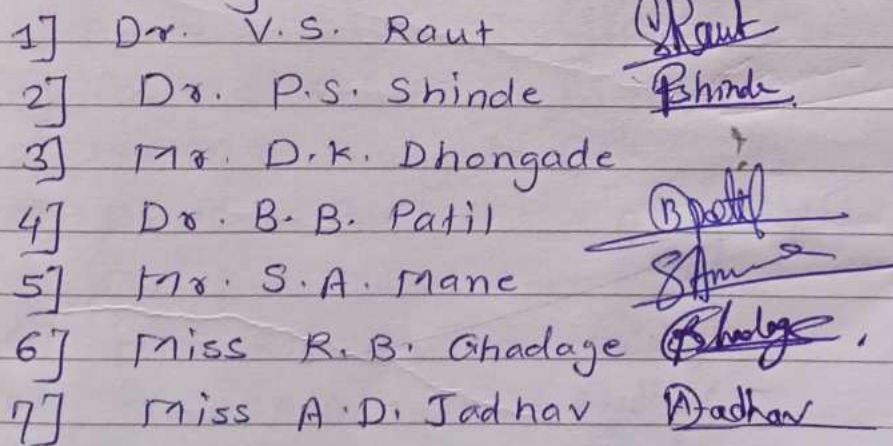 1] Dr. V.S. Raut VRaut
2] Dr. P.S. Shinde PShinde.
3] Mr. D.K. Dhongade
4] Dr. B.B. Patil BPatil
5] Mr. S.A. Mane
6] Miss R.B. Ghadage
7] Miss A.D. Jadhav AJadhav